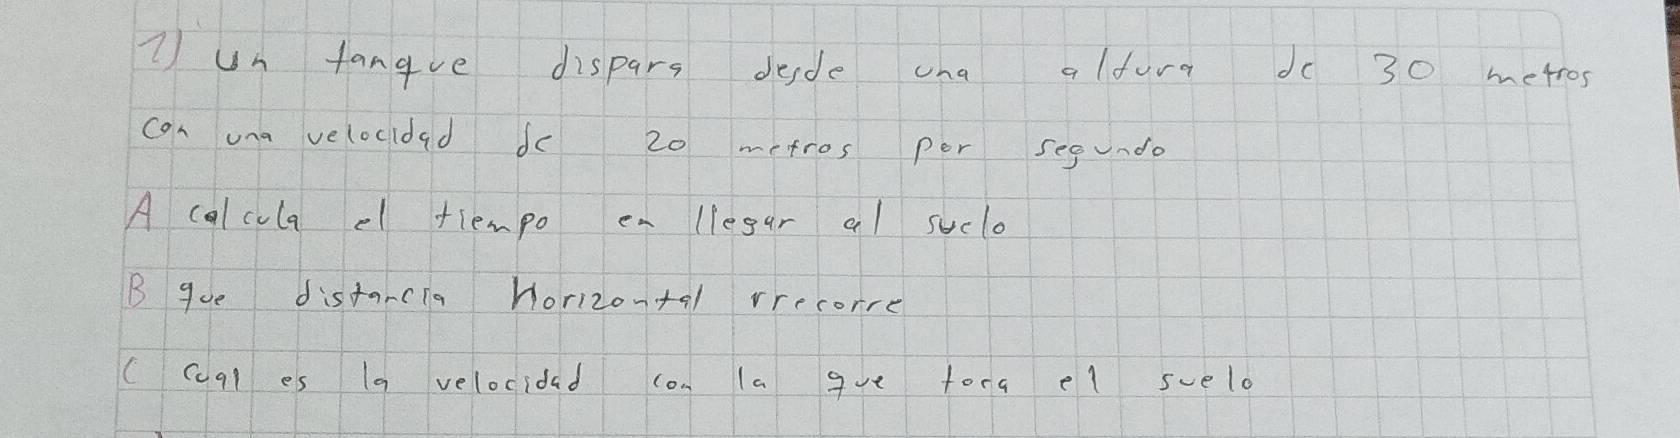 1) un tanque dispara desde una altura de 30 metros
con una velocidad de 20 metros por segundo
A calcula el tiempo en llegar al suelo
B que distancia horizontal rrecorre
C cual es la velocidad con la que toca el suelo